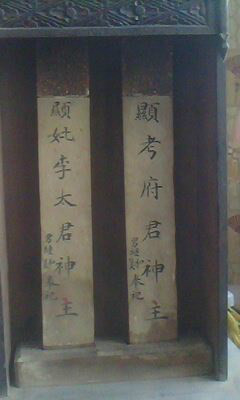 顯考府君神主
奉祀
顯妣李太君神主
奉祀